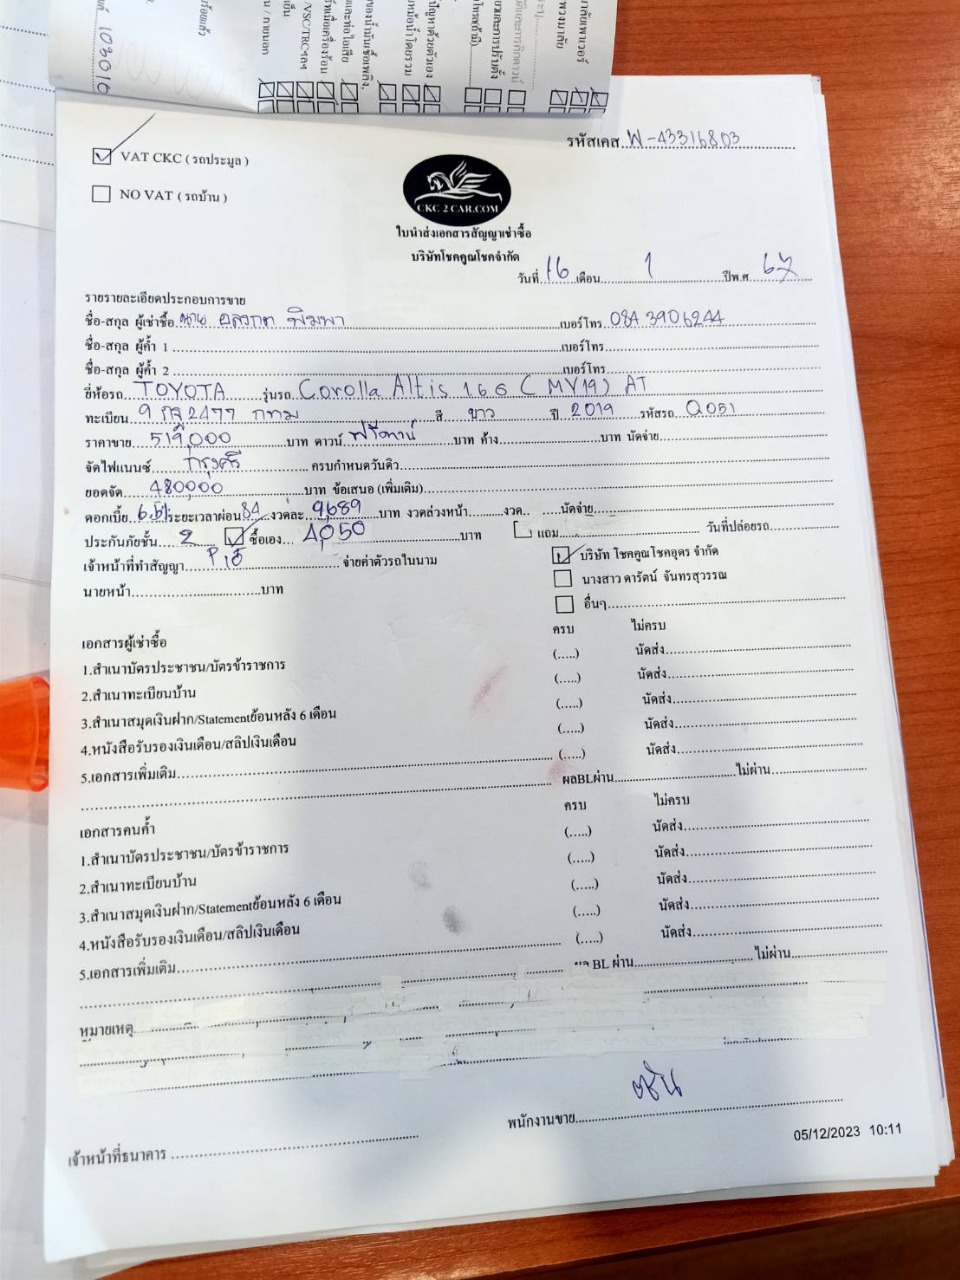 รหัสเคส W-43316803
VAT CKC ( รถประมูล )
NO VAT ( รถบ้าน )
CKC 2 CAR.COM
ใบนำส่งเอกสารสัญญาเช่าซื้อ
บริษัทโชคคูณโชคจำกัด
วันที่ 16 เดือน 1 ปีพ.ศ 67
รายรายละเอียดประกอบการขาย
ชื่อ-สกุล ผู้เช่าซื้อ นาย พิมพา เบอร์โทร 084 3906244
ชื่อ-สกุล ผู้ค้ำ 1 เบอร์โทร
ชื่อ-สกุล ผู้ค้ำ 2 เบอร์โทร
ยี่ห้อรถ TOYOTA รุ่นรถ Corolla Altis 1.6 G ( MY19) AT
ทะเบียน 2477 กทม สี ขาว ปี 2019 รหัสรถ Q051
ราคาขาย 519,000 บาท ดาวน์ ฟรีดาวน์ บาท ค้าง บาท นัดจ่าย
จัดไฟแนนซ์ กรุงศรี ครบกำหนดวันดิว
ยอดจัด 480000 บาท ข้อเสนอ (เพิ่มเติม)
ดอกเบี้ย ระยะเวลาผ่อน 84 งวดละ 9689 บาท งวดล่วงหน้า งวด นัดจ่าย
ประกันภัยชั้น 2 ซื้อเอง 4,050 บาท แถม วันที่ปล่อยรถ
เจ้าหน้าที่ทำสัญญา จ่ายค่าตัวรถในนาม บริษัท โชคคูณโชคอุดร จำกัด
นางสาว ดารัตน์ จันทรสุวรรณ
นายหน้า บาท อื่นๆ
เอกสารผู้เช่าซื้อ ครบ ไม่ครบ
1.สำเนาบัตรประชาชน/บัตรข้าราชการ (.....) นัดส่ง
2.สำเนาทะเบียนบ้าน (.....) นัดส่ง
3.สำเนาสมุดเงินฝาก/Statementย้อนหลัง 6 เดือน (.....) นัดส่ง
4.หนังสือรับรองเงินเดือน/สลิปเงินเดือน (.....) นัดส่ง
5.เอกสารเพิ่มเติม (.....) นัดส่ง
ผลBLผ่าน ไม่ผ่าน
เอกสารคนค้ำ ครบ ไม่ครบ
1.สำเนาบัตรประชาชน/บัตรข้าราชการ (.....) นัดส่ง
2.สำเนาทะเบียนบ้าน (.....) นัดส่ง
3.สำเนาสมุดเงินฝาก/Statementย้อนหลัง 6 เดือน (.....) นัดส่ง
4.หนังสือรับรองเงินเดือน/สลิปเงินเดือน (.....) นัดส่ง
5.เอกสารเพิ่มเติม (.....) นัดส่ง
BL ผ่าน ไม่ผ่าน
หมายเหตุ
พนักงานขาย
เจ้าหน้าที่ธนาคาร
05/12/2023 10:11